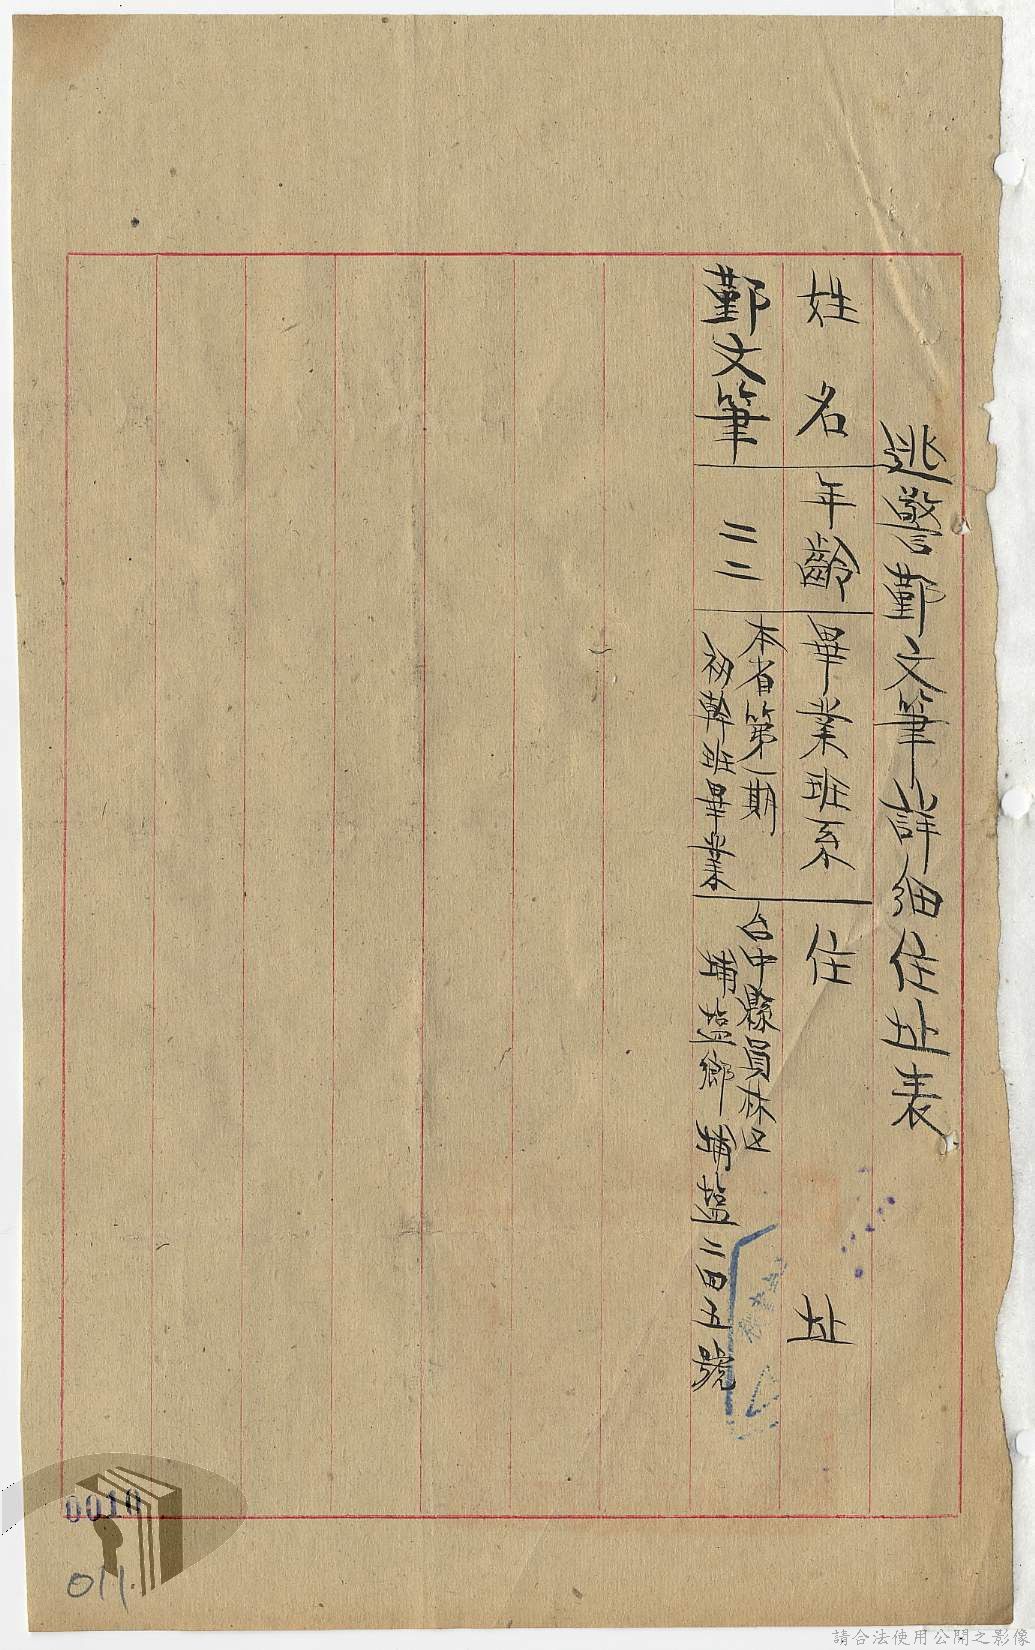 逃警鄞文筆詳細住址表
姓名
年齡
畢業班系
住址
鄞文筆
二二
本省第一期
初幹班畢業
台中縣員林区
埔塩鄉埔塩二四五號
0010
011
請合法使用公開之影像